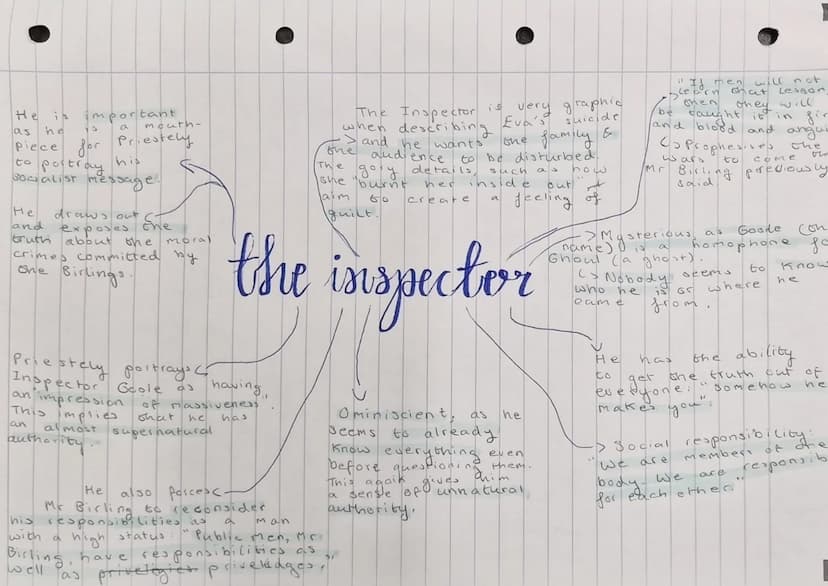 He is important
as he is a mouth-
piece for Priestely
to portray his
socialist message.
The Inspector is very graphic
when describing Eva's suicide
and he wants the family &
the audience to be disturbed.
The goly details, such as how
she "burnt her inside out"
aim to create a feeling of
guilt.
"If men will not
learn that lesson,
then they will
be taught it in
and blood and
Prophesises the
wars to come
Mr Birling previously
said.
He draws out
and exposes the
truth about the moral
crimes committed by
the Birlings.
the inspector
Mysterious, as Goole (
name) is a homophone
Ghoul (a ghost).
Nobody seems to know
who he is or where he
came from.
Priestely portrays
Inspector Goole as having
an "impression of massiveness".
This implies that he has
an almost supernatural
authority.
Ominiscient, as he
seems to already
know everything even
before questioning them.
This again gives him
a sense of unnatural
authority.
He has the ability
to get the truth out of
everyone: "somehow he
makes you".
Social responsibility:
"We are members of
body. We are
for each other."
He also forces
Mr Birling to reconsider
his responsibilities as a man
with a high status: "Public men, Mr.
Birling, have responsibilities as
well as privelegies priveledges."